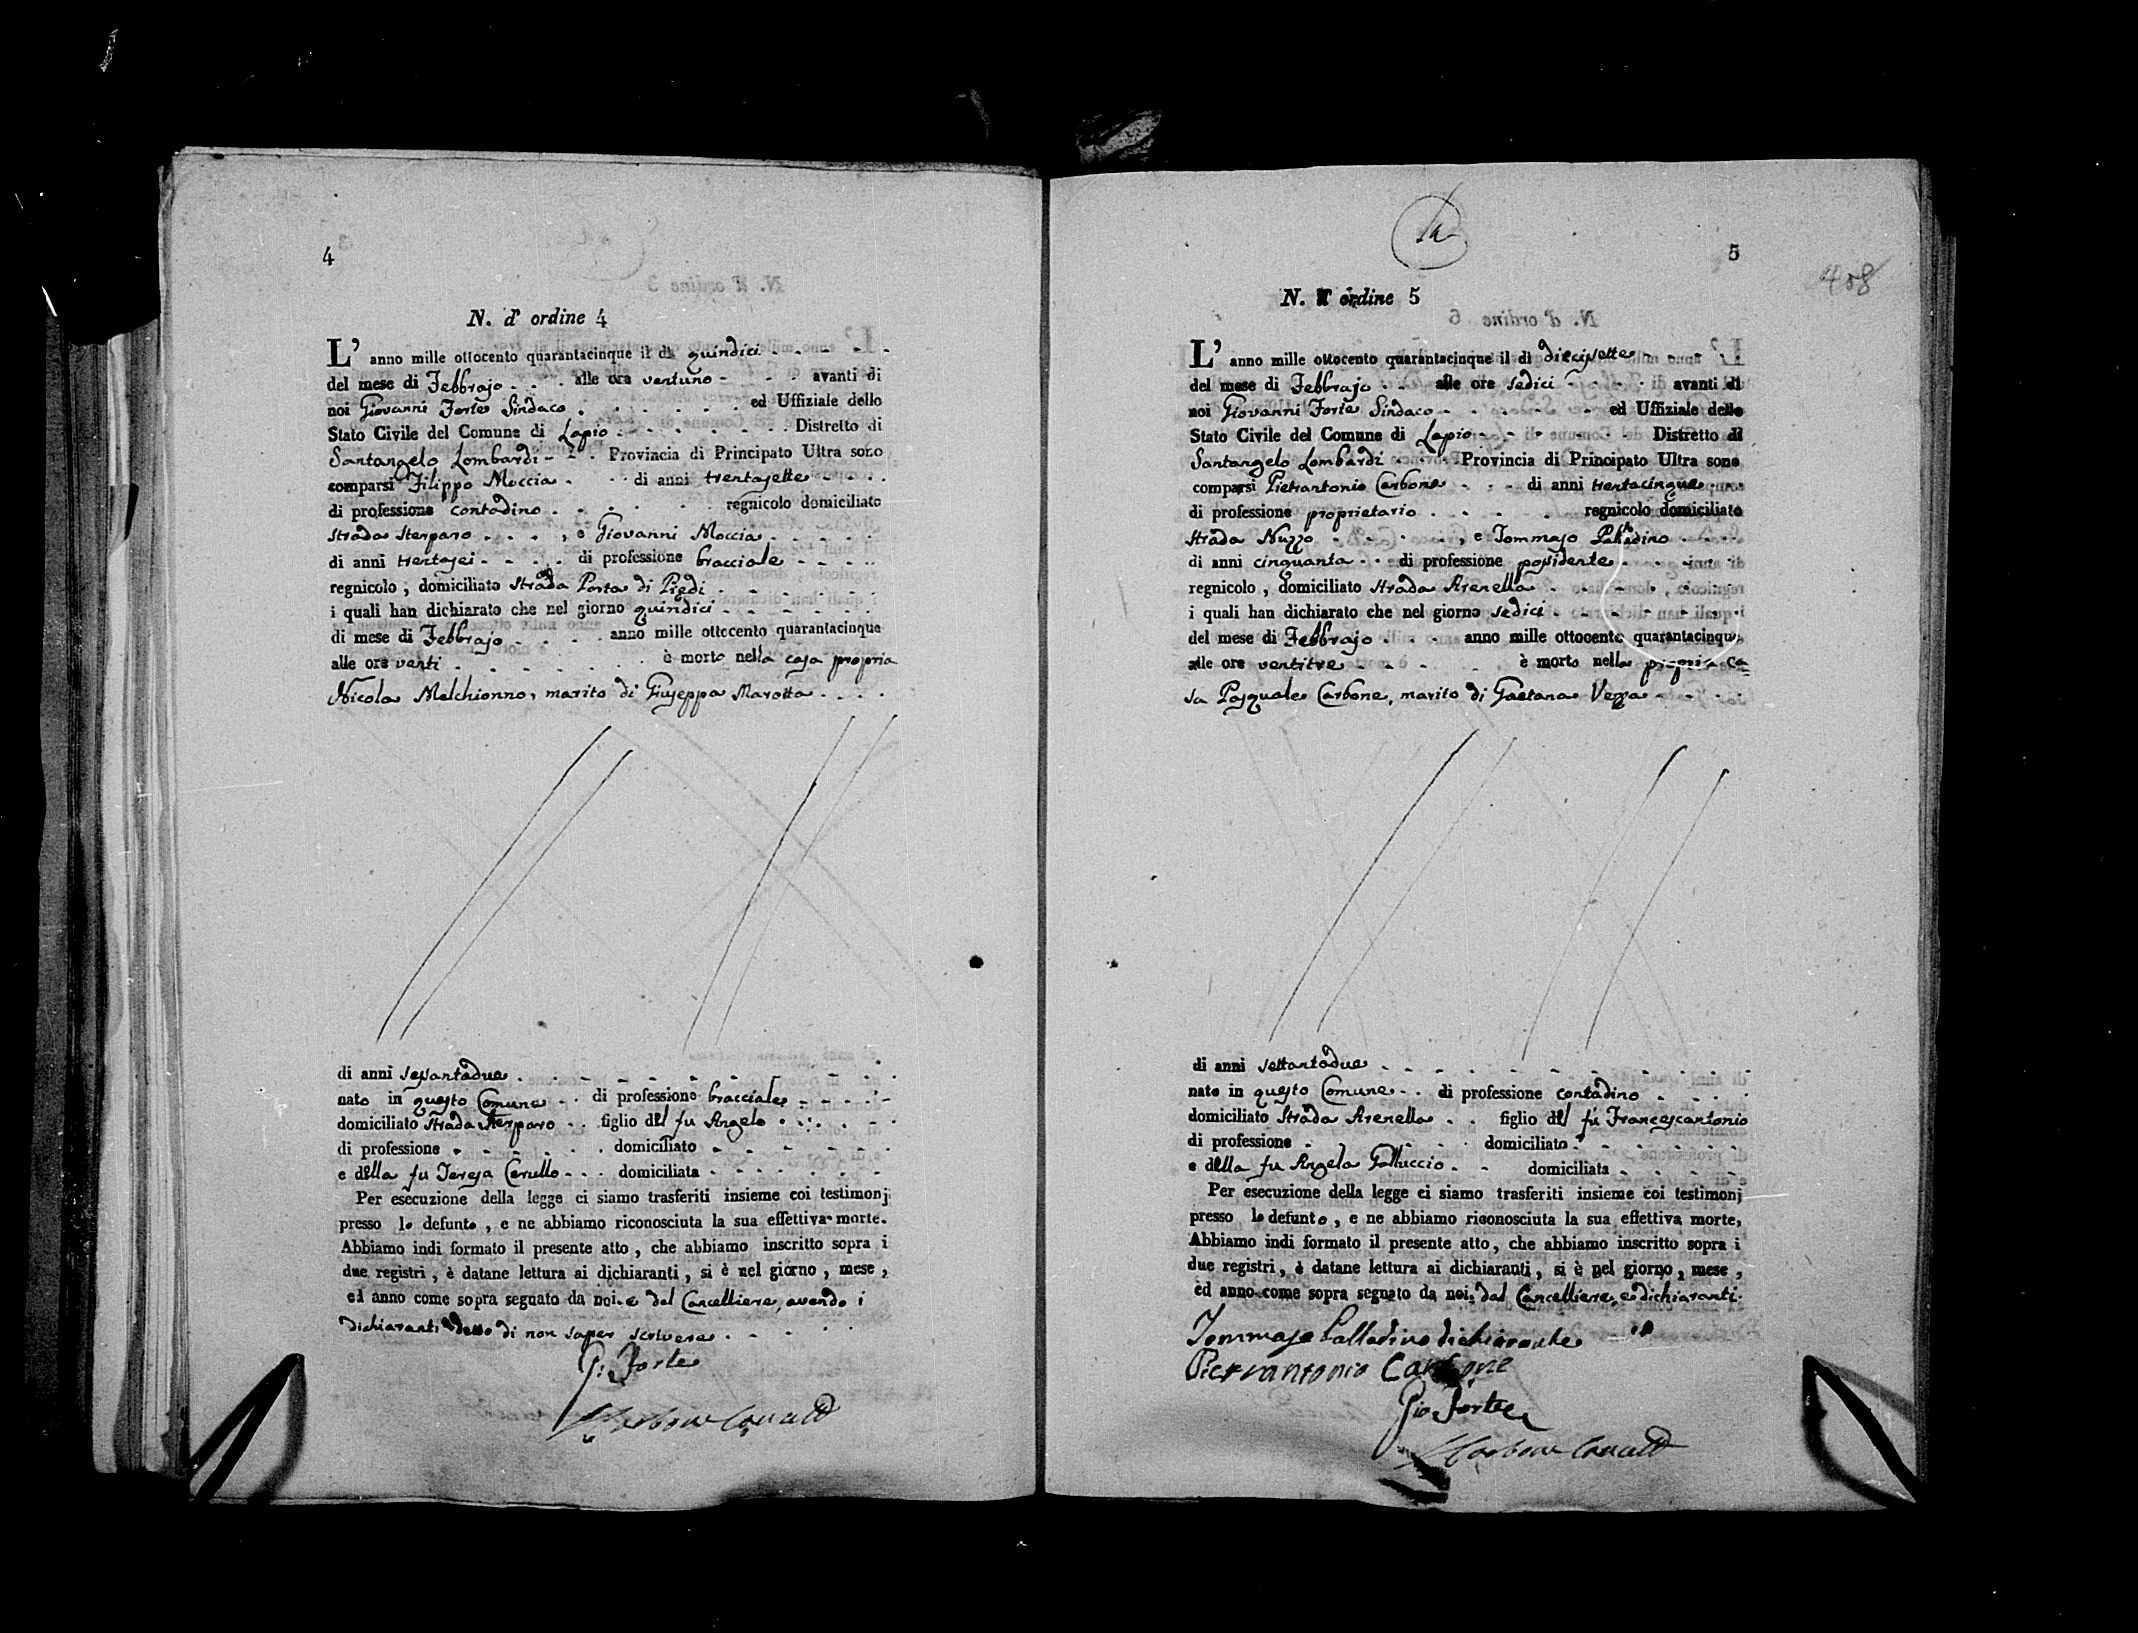 4
N. d' ordine 4
L' anno mille ottocento quarantacinque il dì quindici
del mese di Febbrajo alle ore ventuno avanti di
noi Giovanni Forte Sindaco ed Uffiziale dello
Stato Civile del Comune di Lapio Distretto di
Santangelo Lombardi Provincia di Principato Ultra sono
comparsi Filippo Moccia di anni trentasette
di professione contadino regnicolo domiciliato
Strada Sterparo , e Giovanni Moccia
di anni trentasei di professione bracciale
regnicolo , domiciliato Strada Porta di Piedi
i quali han dichiarato che nel giorno quindici
di mese di Febbrajo anno mille ottocento quarantacinque
alle ore venti è morto nella casa propria
Nicola Melchionno, marito di Giuseppa Marotta
di anni sessantadue
nato in questo Comune di professione bracciale
domiciliato Strada Sterparo figlio del fu Angelo
di professione domiciliato
e della fu Teresa Cerullo domiciliata
Per esecuzione della legge ci siamo trasferiti insieme coi testimonj
presso lo defunto , e ne abbiamo riconosciuta la sua effettiva morte.
Abbiamo indi formato il presente atto , che abbiamo inscritto sopra i
due registri , è datane lettura ai dichiaranti , si è nel giorno , mese ,
ed anno come sopra segnato da noi, e dal Cancelliere, avendo i
dichiaranti detto di non saper scrivere
Gio Forte
5
408
N. d' ordine 5
L' anno mille ottocento quarantacinque il dì diecisette
del mese di Febbrajo alle ore sedici avanti di
noi Giovanni Forte Sindaco ed Uffiziale dello
Stato Civile del Comune di Lapio Distretto di
Santangelo Lombardi Provincia di Principato Ultra sono
comparsi Pietrantonio Carbone di anni trentacinque
di professione proprietario regnicolo domiciliato
Strada Nuzzo , e Tommaso Palladino
di anni cinquanta di professione possidente
regnicolo , domiciliato Strada Arenella
i quali han dichiarato che nel giorno sedici
del mese di Febbrajo anno mille ottocento quarantacinque
alle ore ventitre è morto nella propria ca
sa Pasquale Carbone, marito di Gaetana Vezza
di anni settantadue
nato in questo Comune di professione contadino
domiciliato Strada Arenella figlio del fu Francescantonio
di professione domiciliato
e della fu Angela Galluccio domiciliata
Per esecuzione della legge ci siamo trasferiti insieme coi testimonj
presso lo defunto , e ne abbiamo riconosciuta la sua effettiva morte,
Abbiamo indi formato il presente atto, che abbiamo inscritto sopra i
due registri , è datane lettura ai dichiaranti , si è nel giorno , mese ,
ed anno come sopra segnato da noi, dal Cancelliere, e dichiaranti
Tommaso Palladino dichiarante
Pietrantonio Carbone
Gio Forte